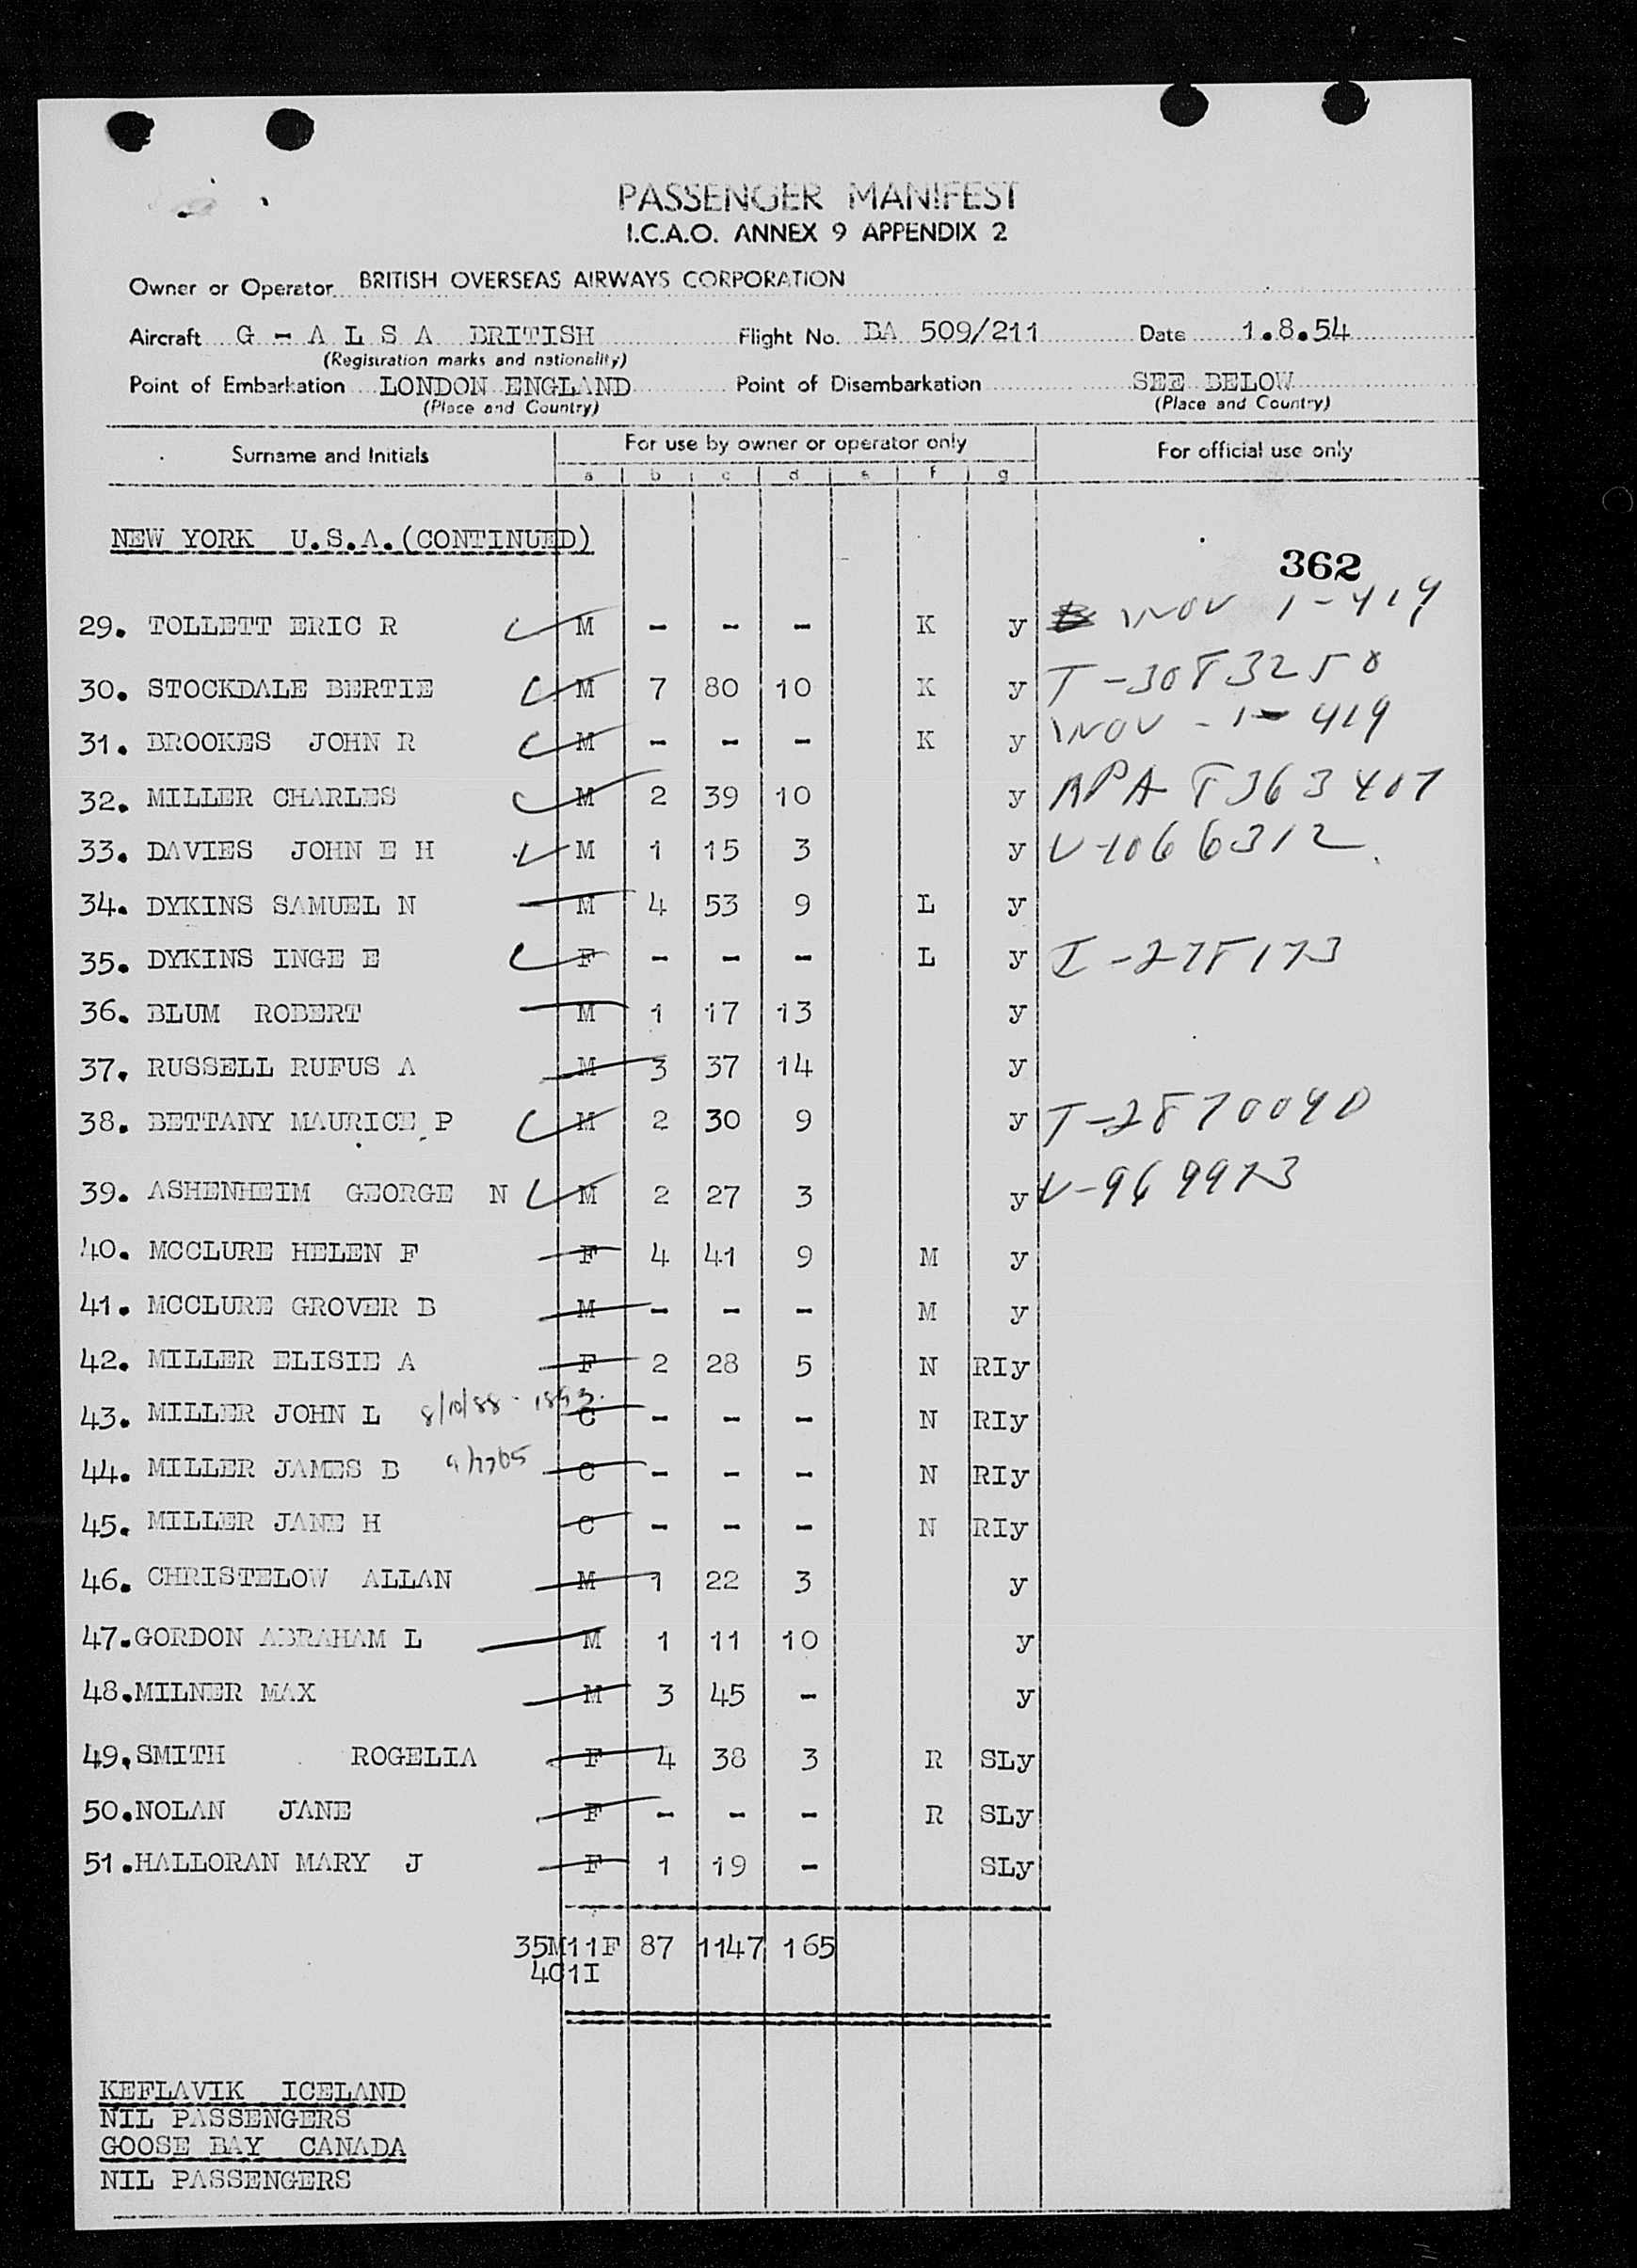 PASSENGER MANIFEST
I.C.A.O. ANNEX 9 APPENDIX 2
Owner or Operator BRITISH OVERSEAS AIRWAYS CORPORATION
Aircraft G - A L S A BRITISH Flight No. BA 509/211 Date 1.8.54
(Registration marks and nationality)
Point of Embarkation LONDON ENGLAND Point of Disembarkation SEE BELOW
(Place and Country) (Place and Country)
Surname and Initials For use by owner or operator only For official use only
a b c d e f g
NEW YORK U.S.A.(CONTINUED)
362
29. TOLLETT ERIC R M - - - K y WOV 1-419
30. STOCKDALE BERTIE M 7 80 10 K y T-3083250
31. BROOKES JOHN R M - - - K y WOV -1-419
32. MILLER CHARLES M 2 39 10 y
33. DAVIES JOHN E H M 1 15 3 y V-1066312
34. DYKINS SAMUEL N M 4 53 9 L y
35. DYKINS INGE E F - - - L y I-278173
36. BLUM ROBERT M 1 17 13 y
37. RUSSELL RUFUS A M 3 37 14 y
38. BETTANY MAURICE P M 2 30 9 y T-2870090
39. ASHENHEIM GEORGE N M 2 27 3 y V-969973
40. MCCLURE HELEN F F 4 41 9 M y
41. MCCLURE GROVER B M - - - M y
42. MILLER ELISIE A F 2 28 5 N RIy
43. MILLER JOHN L 8/10/88 - C - - - N RIy
44. MILLER JAMES B C - - - N RIy
45. MILLER JANE H C - - - N RIy
46. CHRISTELOW ALLAN M 1 22 3 y
47.GORDON ABRAHAM L M 1 11 10 y
48.MILNER MAX M 3 45 - y
49.SMITH ROGELIA F 4 38 3 R SLy
50.NOLAN JANE F - - - R SLy
51.HALLORAN MARY J F 1 19 - SLy
35M11F 87 1147 165
4C1I
KEFLAVIK ICELAND
NIL PASSENGERS
GOOSE BAY CANADA
NIL PASSENGERS